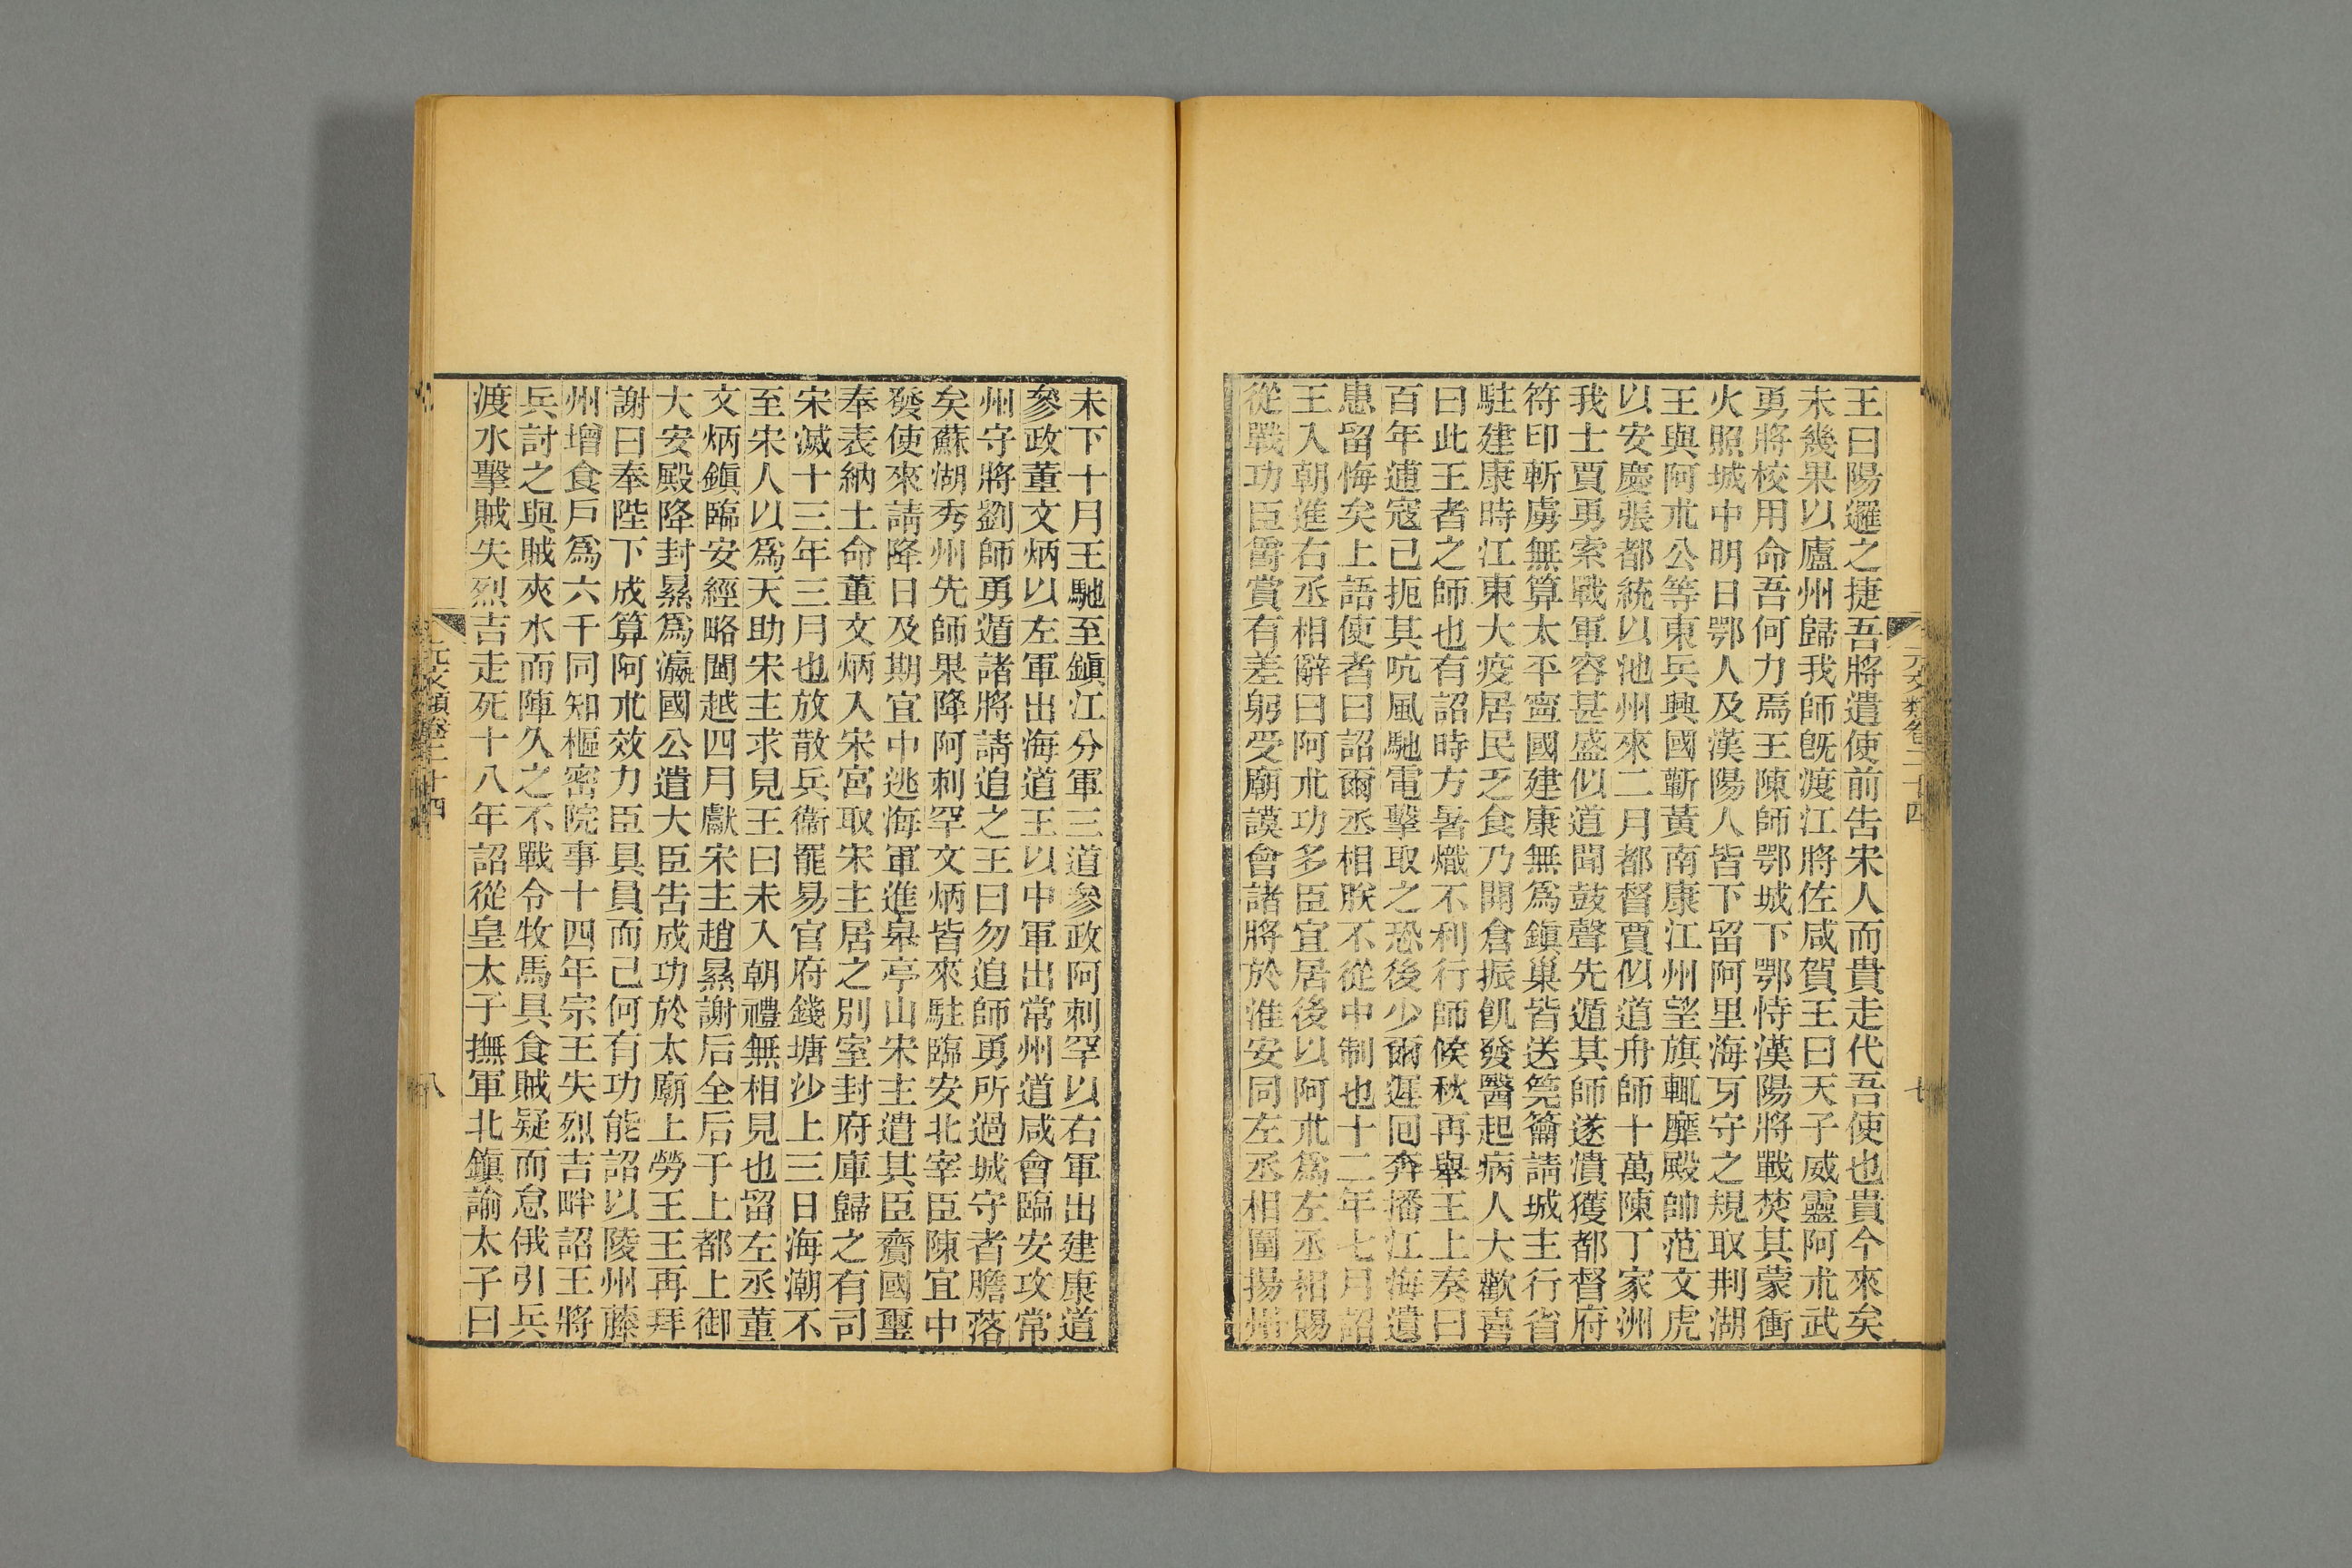 王曰陽邏之捷吾將遣使前告宋人而貴走代吾使也貴今來矣
未幾果以廬州歸我師旣渡江將佐咸賀王曰天子威靈阿朮武
勇將校用命吾何力焉王陳師鄂城下鄂恃漢陽將戰焚其蒙衝
火照城中明日鄂人及漢陽人皆下留阿里海牙守之規取荆湖
王與阿朮公等東兵興國蘄黃南康江州望旗輒靡殿帥范文虎
以安慶張都統以池州來二月都督賈似道舟師十萬陳丁家洲
我士賈勇索戰軍容甚盛似道聞鼓聲先遁其師遂潰獲都督府
符印斬虜無算太平寧國建康無爲鎭巢皆送筦籥請城主行省
駐建康時江東大疫居民乏食乃開倉振飢發醫起病人大歡喜
曰此王者之師也有詔時方暑熾不利行師候秋再舉王上奏曰
百年逋寇己扼其吭風馳電擊取之恐後少爾遲回奔播江海遺
患留悔矣上語使者曰詔爾丞相朕不從中制也十二年七月詔
王入朝進右丞相辭曰阿朮功多臣宜居後以阿朮爲左丞相賜
從戰功臣爵賞有差躬受廟謨會諸將於淮安同左丞相圍揚州
元文類卷二十四
七
未下十月王馳至鎭江分軍三道參政阿刺罕以右軍出建康道
參政董文炳以左軍出海道王以中軍出常州道咸會臨安攻常
州守將劉師勇遁諸將請追之王曰勿追師勇所過城守者膽落
矣蘇湖秀州先師果降阿刺罕文炳皆來駐臨安北宰臣陳宜中
發使來請降日及期宜中逃海軍進皋亭山宋主遣其臣齎國璽
奉表納土命董文炳入宋宮取宋主居之別室封府庫歸之有司
宋滅十三年三月也放散兵衞罷易官府錢塘沙上三日海潮不
至宋人以爲天助宋主求見王曰未入朝禮無相見也留左丞董
文炳鎭臨安經略閩越四月獻宋主趙㬎謝后全后于上都上御
大安殿降封㬎爲瀛國公遣大臣告成功於太廟上勞王王再拜
謝曰奉陛下成算阿朮效力臣具員而己何有功能詔以陵州藤
州增食戶爲六千同知樞密院事十四年宗王失烈吉畔詔王將
兵討之與賊夾水而陣久之不戰令牧馬具食賊疑而怠俄引兵
渡水擊賊失烈吉走死十八年詔從皇太子撫軍北鎭諭太子曰
元文類卷二十四
八